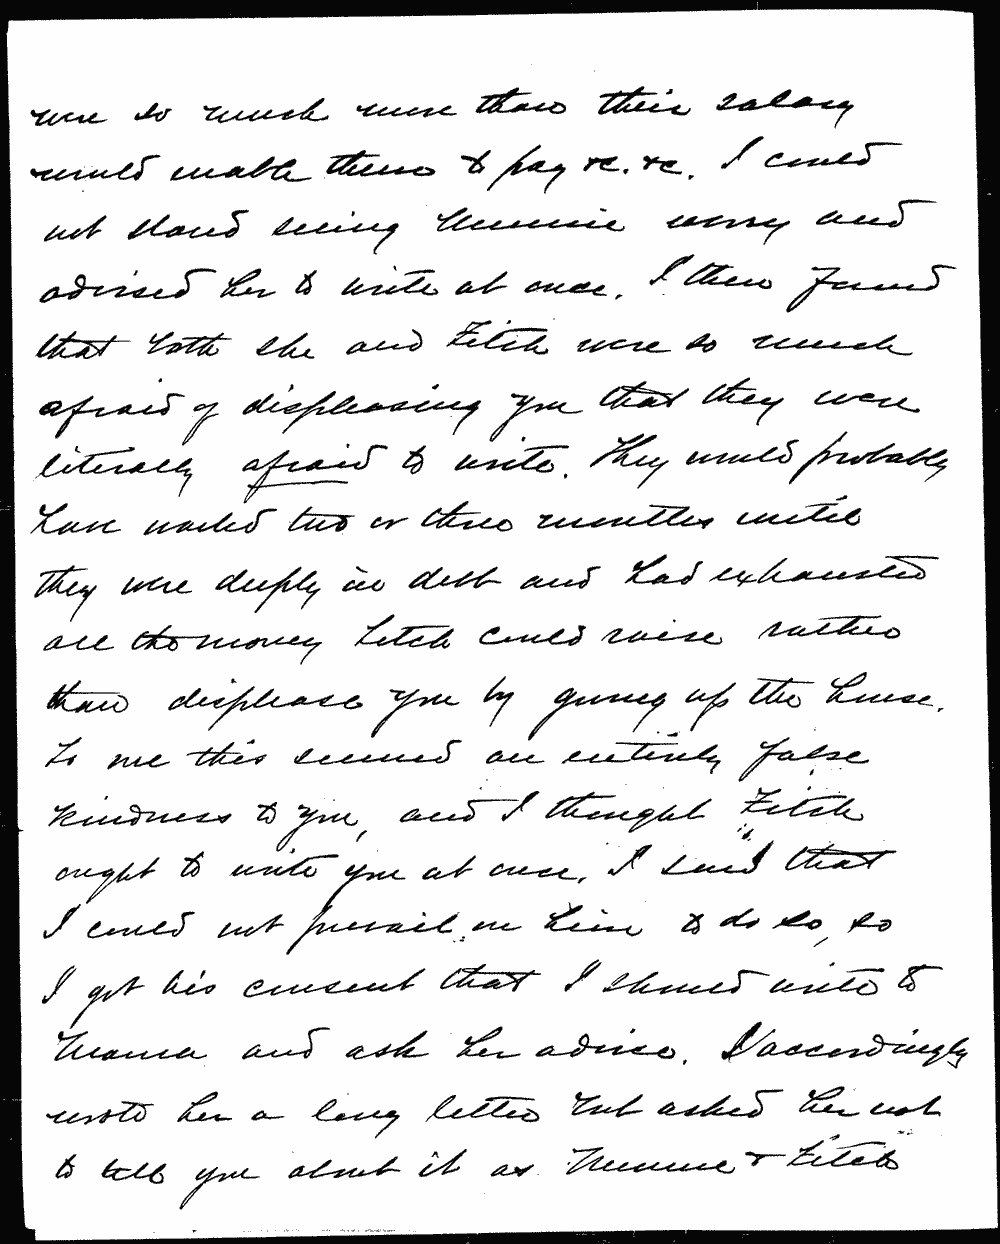 were so much more than their salary
would enable them to pay &c. &c. I could
not stand seeing Nunnie worry and
advised her to write at once. I then found
that both she and Fitch were so much
afraid of displeasing you that they were
literally afraid to write. They would probably
have waited two or three months until
they were deeply in debt and had exhausted
all the money Fitch could raise rather
than displease you by giving up the house.
To me this seemed an entirely false
kindness to you, and I thought Fitch
ought to write you at once. I said that
I could not prevail on him to do so, so
I got his consent that I should write to
Mama and ask her advice. I accordingly
wrote her a long letter but asked her not
to tell you about it as Nunnie & Fitch